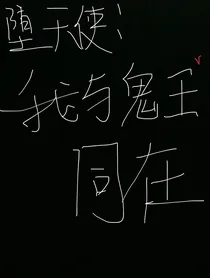 堕天使:
我与鬼王
同在